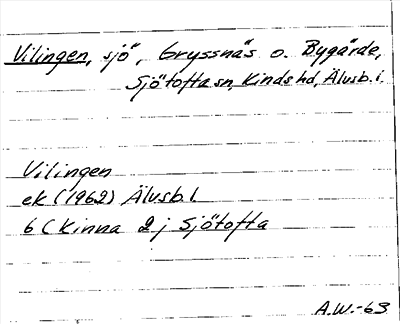 Vilingen, sjö, Gryssnäs o. Bygärde,
Sjötofta sn, Kinds hd, Älvsb. l.
Vilingen
ek (1962) Älvsb. l.
6 C Kinna 2 j Sjötofta
A.W.-63